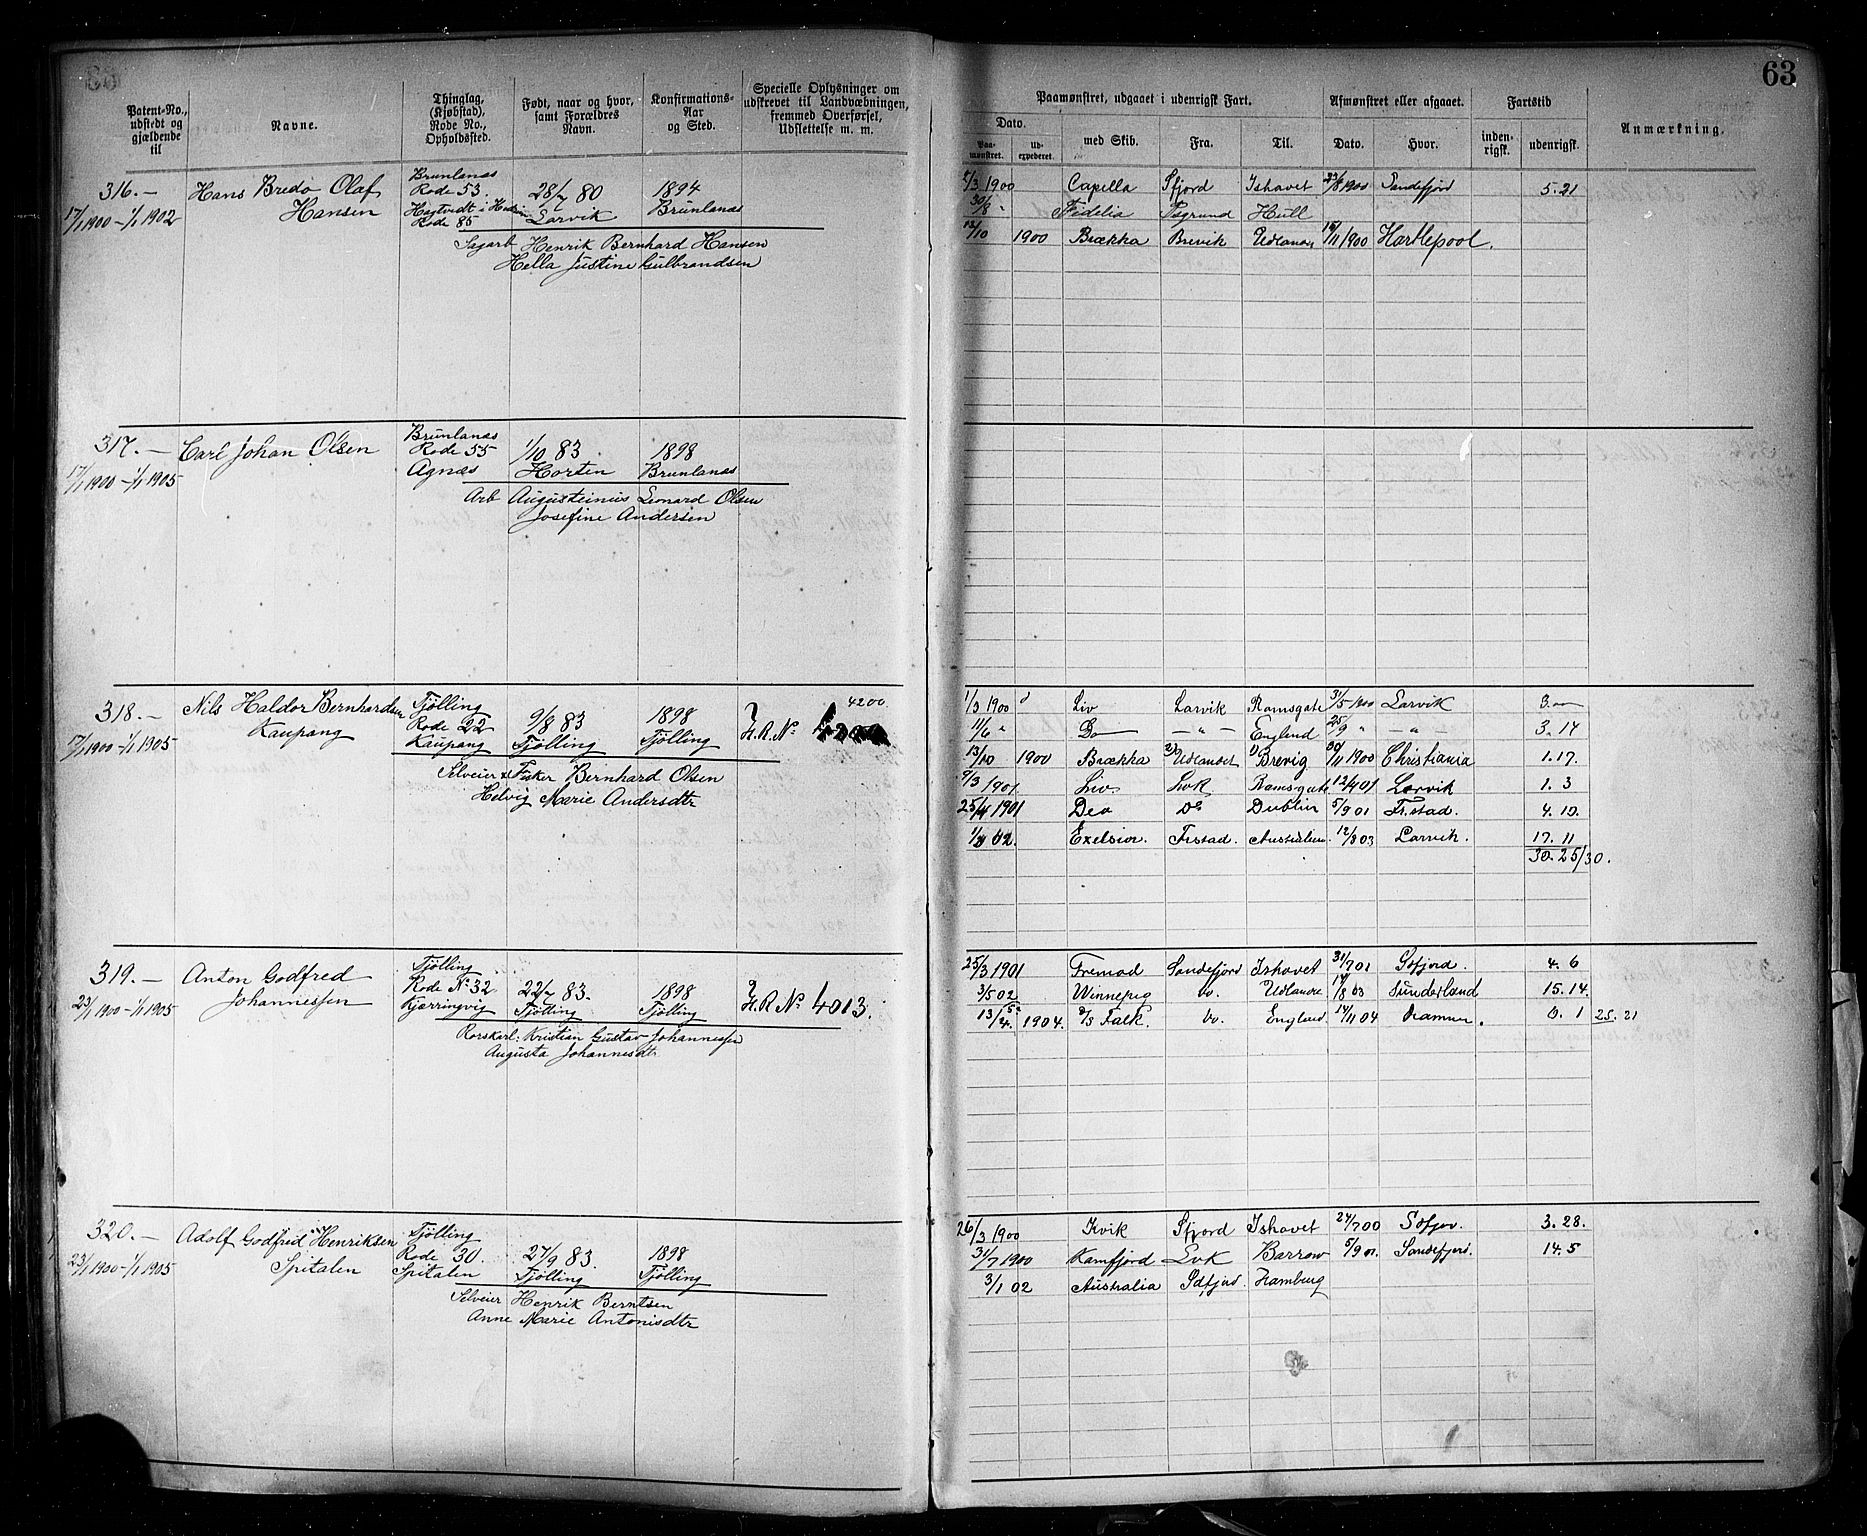 63
Patent-No., udstedt og gjældende til
Navne.
Thinglag, (Kjøbstad), Rode No., Opholdssted.
Født, naar og hvor, samt Forældres Navn.
Konfirmations-Aar og Sted.
Specielle Oplysninger om udskrevet til Landvæbningen, fremmed Overførsel, Udslettelse m. m.
Paamønstret, udgaaet i udenrigsk Fart.
Afmønstret eller afgaaet.
Fartstid
Anmærkning.
Dato.
Paa-mønstret.
Ud-expederet.
med Skib.
Fra.
Til.
Dato.
Hvor.
inden-rigsk.
udenrigsk.
316.— Hans Bredo Olaf Hansen
17/1 1900 – 1/1 1902
Brunlanæs
Rode 53.
Rode 85
28/7 80
Larvik
1894
Brunlanæs
Sagarb Henrik Bernhard Hansen
Hella Justine Gulbrandsen
5/3 1900 Capella Sfjord Ishavet 23/8 1900 Sandefjord 5.21
30/8 " Fidelia Psgrund Hull
12/10 1900 Brækka Brevik Udlandet 1900 Hartlepool.
317.— Carl Johan Olsen
17/1 1900 – 1/1 1905
Brunlanæs
Rode 55
Agnæs
1/10 83
Horten
1898
Brunlanæs
Arb Augusteinius Leonard Olsen
Josefine Andersen
318.— Nils Haldor Bernhardsen
Kaupang
17/1 1900 – 1/1 1905
Tjølling
Rode 22
Kaupang
9/8 83
Tjølling
1898
Tjølling
4200
H.R.No
Selveier & Fisker Bernhard Olsen
Helvig Marie Andersdtr
1/3 1900 Liv Larvik Ramsgate 31/5 1900 Larvik 3.—
11/6 " Do — " — England 25/9 " — " — 3.14
13/10 1900 Brækka Udlandet Brevig 30/11 1900 Christiania 1.17.
9/3 1901 Liv Lvk Ramsgate 12/4 01 Larvik 1.3
25/4 1901 Dea Do Dublin 5/9 01 Frstad. 4.10.
02. Exelsior. Frstad. Australien. 12/8 03 Larvik. 17.11
30.25/30.
319.— Anton Godfred Johannessen
23/1 1900 – 1/1 1905
Tjølling
Rode No 32
Kjærringvig
22/7 83.
Tjølling
1898
Tjølling
H.R.No 4013.
Rorskarl: Kristian Gustav Johannessen
Augusta Johannesdtr
25/3 1901 Fremad Sandefjord Ishavet 31/7 01 Sdfjord. 4.6
3/5 02 Winnepeg Do. Udlandet 17/8 03 Sunderland 15.14.
13/4 1904. D/S Falk. Do. England. 14/11 04 Drammen. 6.1 25.21
320.— Adolf Godfred Henriksen
Spitalen
23/1 1900 – 1/1 1905
Tjølling
Rode 30.
Spitalen
27/9 83.
Tjølling
1898
Tjølling
Selveier Henrik Berntsen
Anne Marie Antonisdtr
26/3 1900 Kvik Sfjord Ishavet 24/7 00 Sdfjor. 3.28.
31/7 1900 Kamfjord Lvk Barrow 5/9 01. Sandefjord. 14.5
3/1 02 Australia Sdfjord. Hamburg